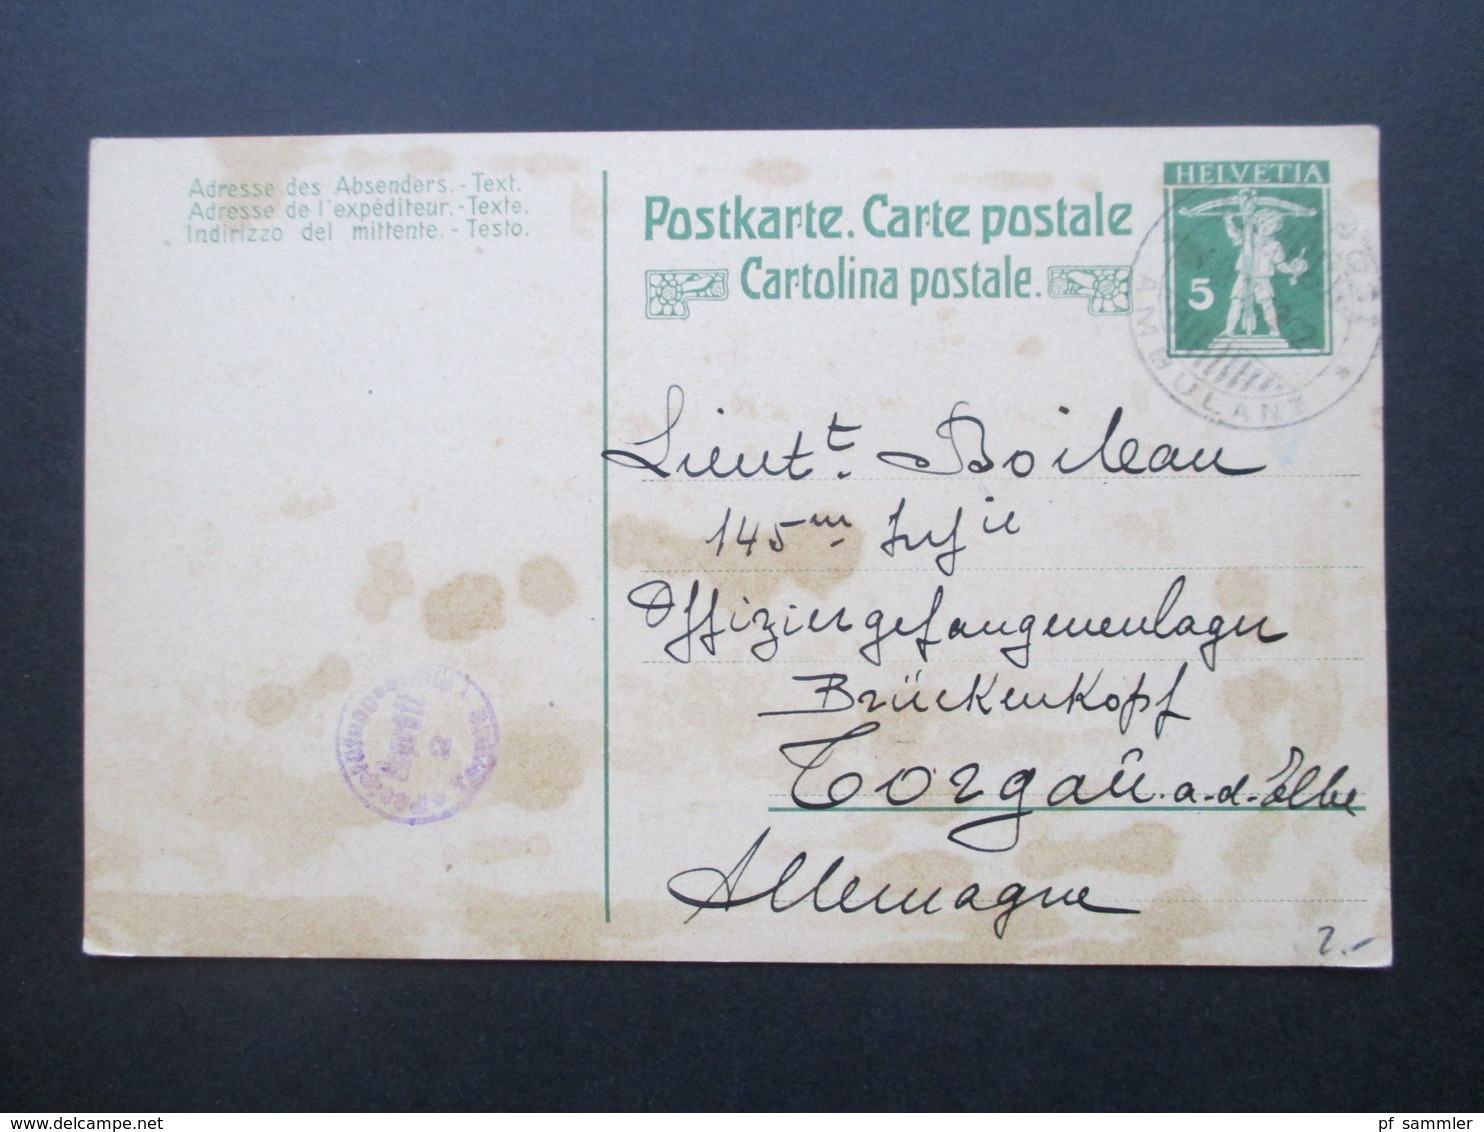 Adresse des Absenders. - Text.
Adresse de l'expéditeur. - Texte.
Indirizzo del mittente. - Testo.
Postkarte. Carte postale
Cartolina postale.
HELVETIA
5
AMBULANT
Lieut.t Boileau
145m Infie
Offiziergefangenenlager
Brückenkopf
Torgau a.d. Elbe
Allemagne
Geprüft
2
Torgau
2.-
pf_sammler